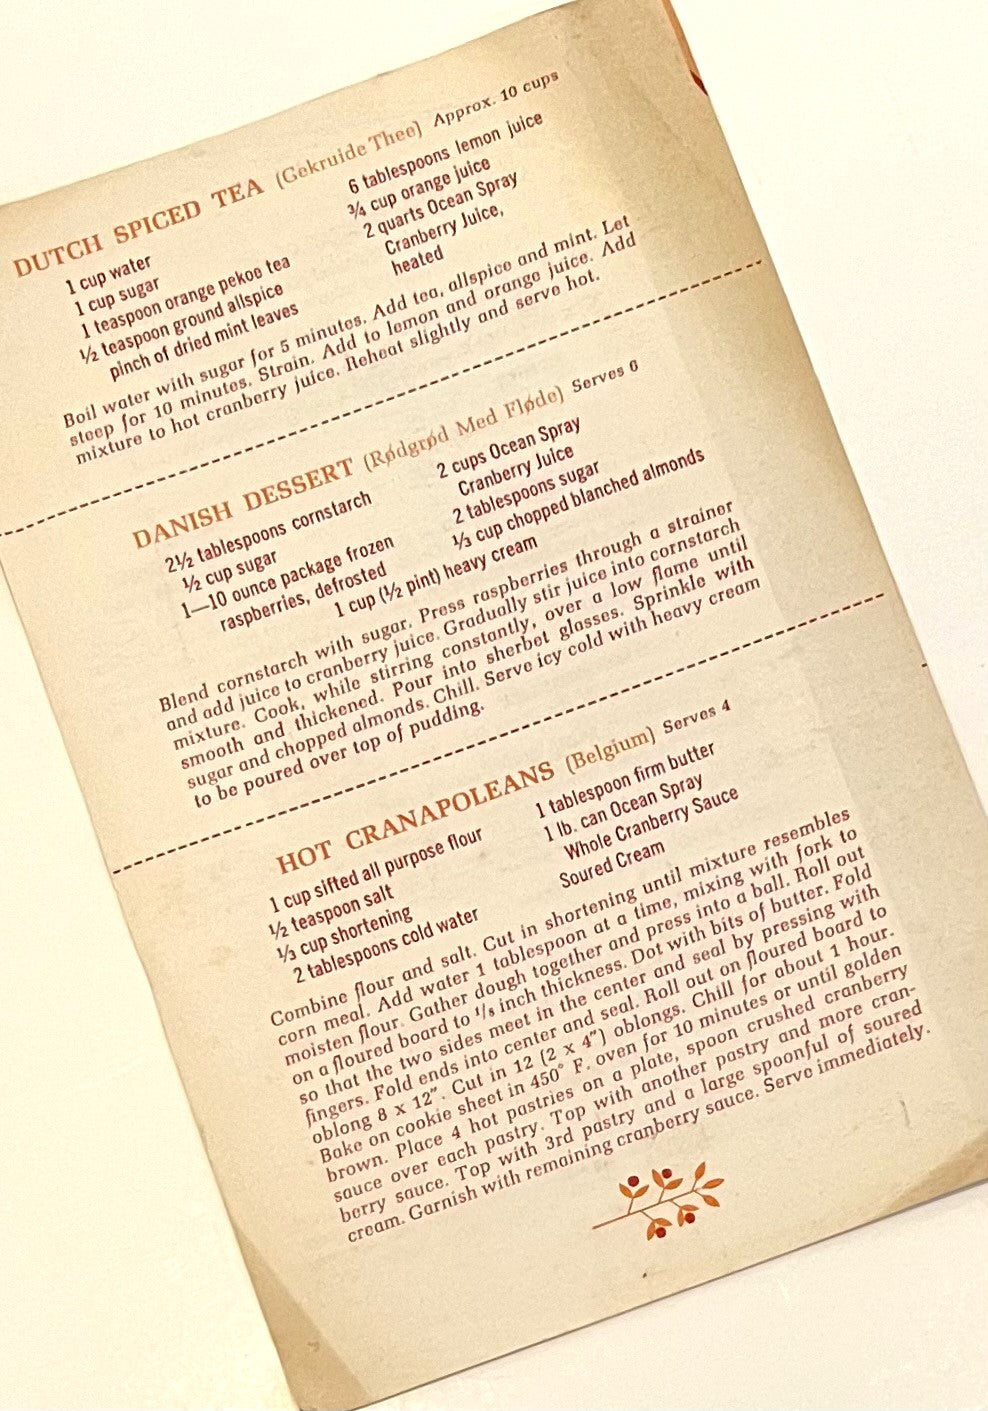 DUTCH SPICED TEA (Gekruide Thee) Approx. 10 cups
1 cup water
1 cup sugar
1 teaspoon orange pekoe tea
½ teaspoon ground allspice
pinch of dried mint leaves
6 tablespoons lemon juice
¾ cup orange juice
2 quarts Ocean Spray
Cranberry Juice,
heated
Boil water with sugar for 5 minutes. Add tea, allspice and mint. Let
steep for 10 minutes. Strain. Add to lemon and orange juice. Add
mixture to hot cranberry juice. Reheat slightly and serve hot.
DANISH DESSERT (Rødgrød Med Fløde) Serves 6
2½ tablespoons cornstarch
½ cup sugar
1—10 ounce package frozen
raspberries, defrosted
2 cups Ocean Spray
Cranberry Juice
2 tablespoons sugar
⅓ cup chopped blanched almonds
1 cup (½ pint) heavy cream
Blend cornstarch with sugar. Press raspberries through a strainer
and add juice to cranberry juice. Gradually stir juice into cornstarch
mixture. Cook, while stirring constantly, over a low flame until
smooth and thickened. Pour into sherbet glasses. Sprinkle with
sugar and chopped almonds. Chill. Serve icy cold with heavy cream
to be poured over top of pudding.
HOT CRANAPOLEANS (Belgium) Serves 4
1 cup sifted all purpose flour
½ teaspoon salt
⅓ cup shortening
2 tablespoons cold water
1 tablespoon firm butter
1 lb. can Ocean Spray
Whole Cranberry Sauce
Soured Cream
Combine flour and salt. Cut in shortening until mixture resembles
corn meal. Add water 1 tablespoon at a time, mixing with fork to
moisten flour. Gather dough together and press into a ball. Roll out
on a floured board to ⅛ inch thickness. Dot with bits of butter. Fold
so that the two sides meet in the center and seal by pressing with
fingers. Fold ends into center and seal. Roll out on floured board to
oblong 8 x 12". Cut in 12 (2 x 4") oblongs. Chill for about 1 hour.
Bake on cookie sheet in 450° F. oven for 10 minutes or until golden
brown. Place 4 hot pastries on a plate, spoon crushed cranberry
sauce over each pastry. Top with another pastry and more cran-
berry sauce. Top with 3rd pastry and a large spoonful of soured
cream. Garnish with remaining cranberry sauce. Serve immediately.